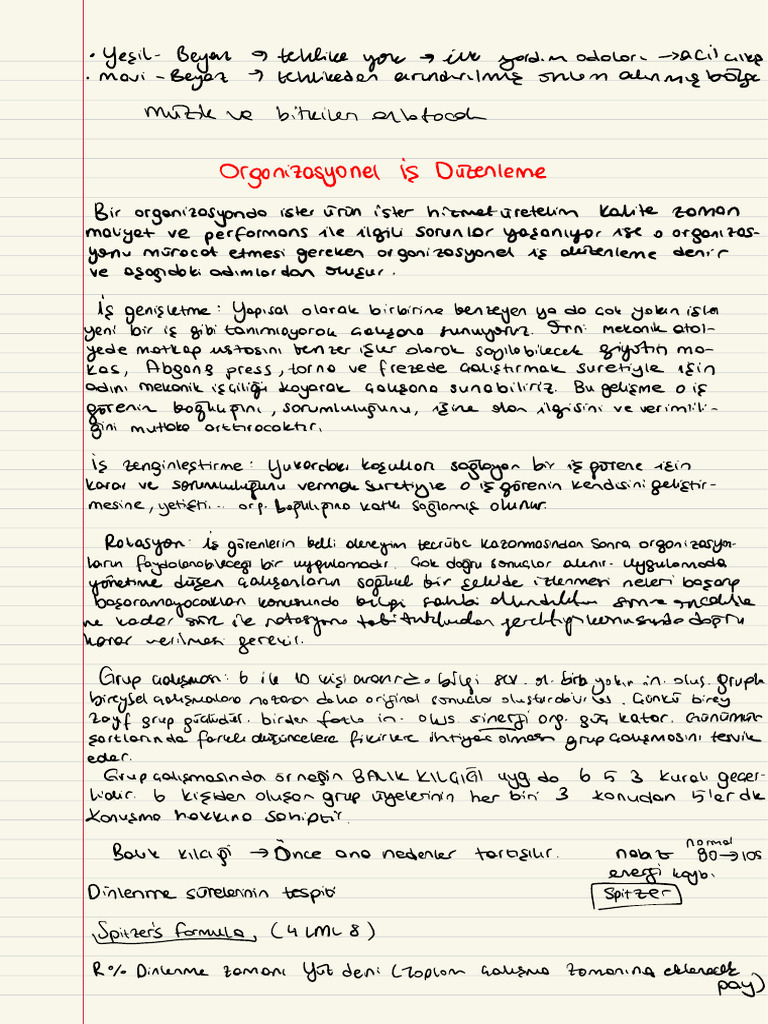 • Yeşil - Beyaz → tehlike yok → ilk yardım odaları → acil çıkış
• Mavi - Beyaz → tehlikeden arındırılmış önlem alınmış bölge
müzik ve bitkiler anlatacak
Organizasyonel İş Düzenleme
Bir organizasyonda ister ürün ister hizmet üretelim kalite zaman
maliyet ve performans ile ilgili sorunlar yaşanıyor ise o organizas-
yonu müracat etmesi gereken organizasyonel iş düzenleme denir
ve aşağıdaki adımlardan oluşur.
İş genişletme: Yapısal olarak birbirine benzeyen ya da çok yakın işler
yeni bir iş gibi tanımlayarak çalışana sunuyoruz. Örn: mekanik atöl-
yede matkap ustasını benzer işler olarak sayılabilecek giyotin ma-
kas, Abgang press, torna ve frezede çalıştırmak suretiyle işin
adını mekanik işçiliği koyarak çalışana sunabiliriz. Bu gelişme o iş
görenin bağlılığını, sorumluluğunu, işine olan ilgisini ve verimlili-
ğini mutlaka arttıracaktır.
İş zenginleştirme: Yukardaki koşulları sağlayan bir iş görene için
karar ve sorumluluğunu vermek suretiyle o iş görenin kendisini geliştir-
mesine, yetişti... org. bağlılığına katkı sağlamış olunur.
Rotasyon: İş görenlerin belli deneyim tecrübe kazanmasından sonra organizasyon-
ların faydalanabileceği bir uygulamadır. Çok doğru sonuçlar alınır. Uygulamada
yönetime düşen çalışanların sağlıklı bir şekilde izlenmesi neleri başarıp
başaramayacakları konusunda bilgi sahibi olunduktan sonra öncelikle
ne kadar süre ile rotasyona tabi tutulmaları gerektiği konusunda doğru
karar verilmesi gerekir.
Grup çalışması: 6 ile 10 kişi arasında bilgi sev. ol. birb. yakın in. oluş. grupla
bireysel çalışmalara nazaran daha original sonuçlar oluşturabilirler. Çünkü birey
zayıf grup güçlüdür. birden fazla in. oluş. sinerji org. güç katar. Günümüz
şartlarında farklı düşüncelere fikirlere ihtiyaç olması grup çalışmasını teşvik
eder.
Grup çalışmasında örneğin BALIK KILÇIĞI uyg da 6 5 3 kuralı geçer-
lidir. 6 kişiden oluşan grup üyelerinin her biri 3 konudan 5'er dk
konuşma hakkına sahiptir.
Balık kılçığı → Önce ana nedenler tartışılır.
normal
nabız 80 → 105
energi kaybı
Spitzer
Dinlenme sürelerinin tespiti
Spitzer's formula, (4 LML 8)
R% Dinlenme zamanı Yüzdeni (Toplam çalışma zamanına eklenecek
pay)